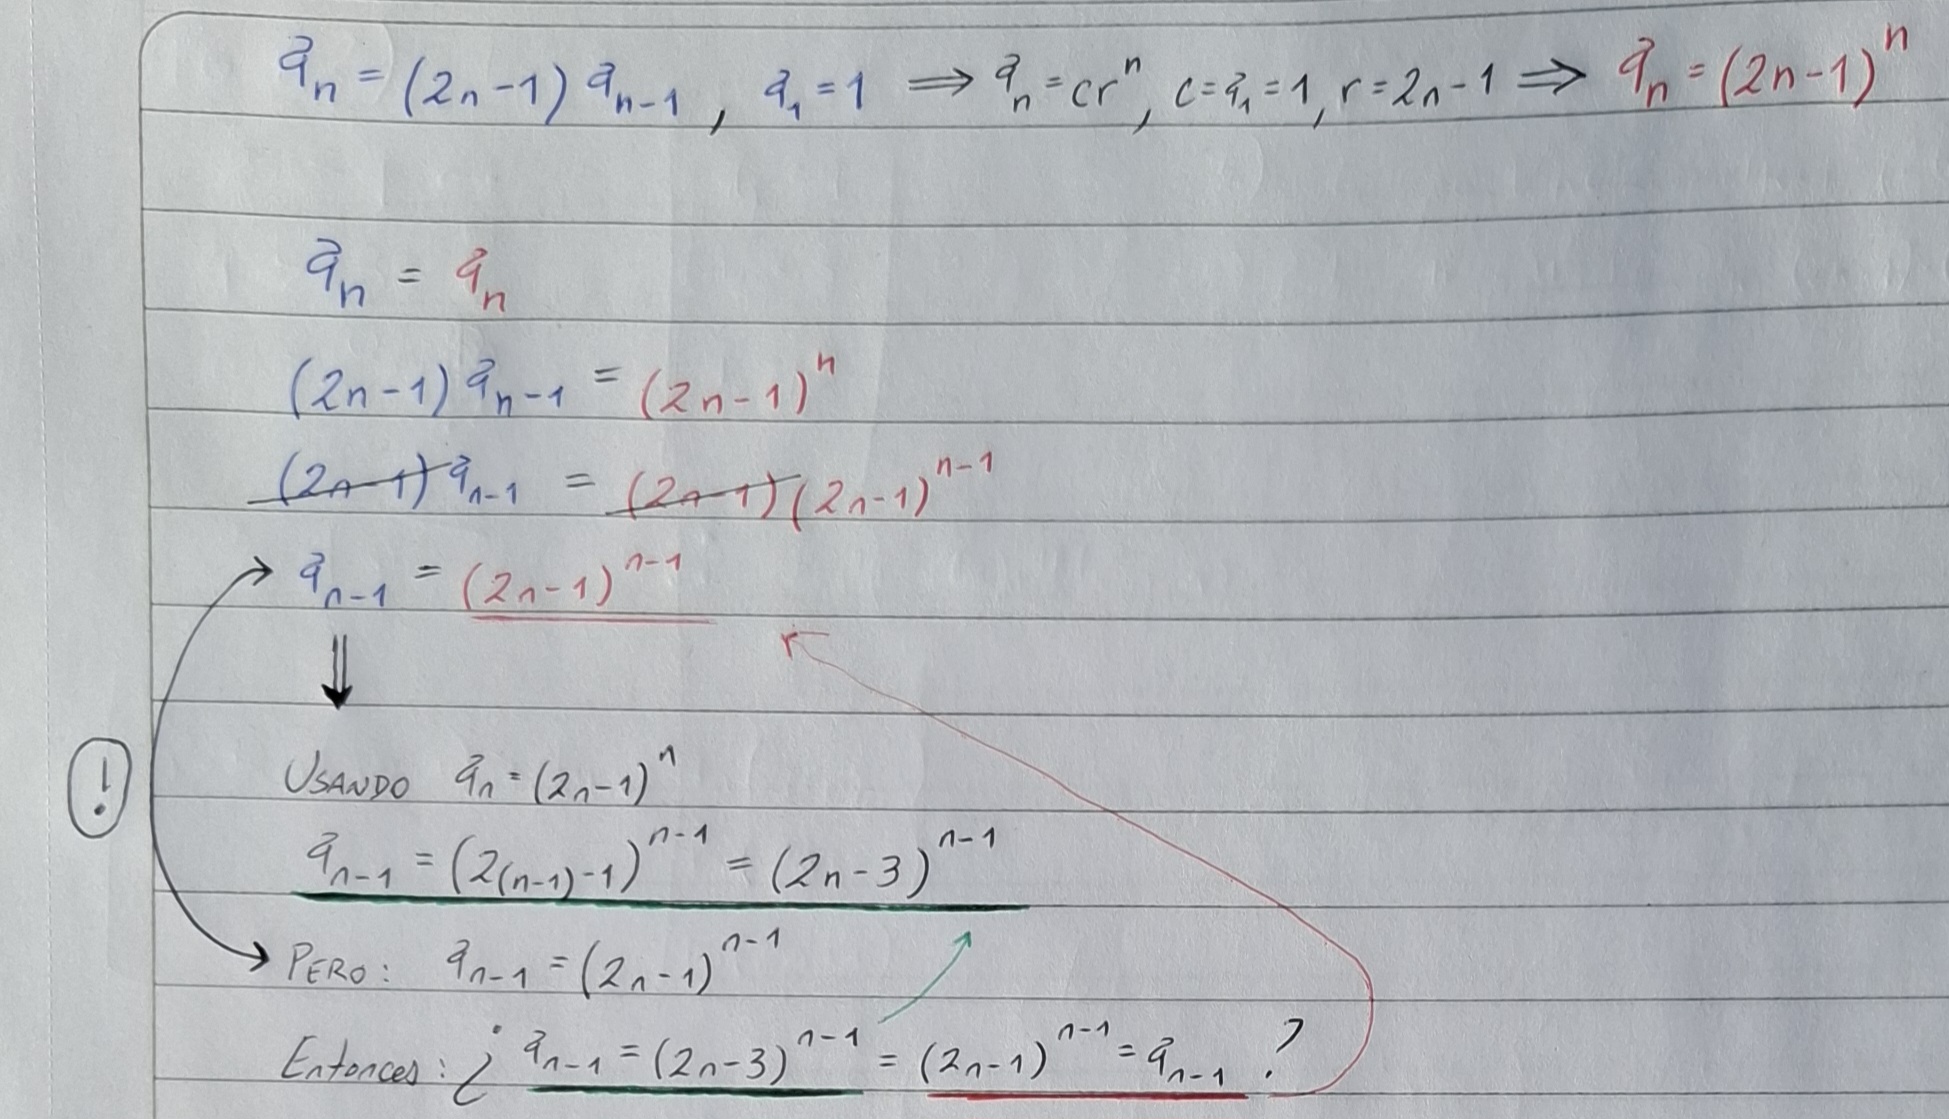 aₙ = (2n-1) aₙ₋₁ , a₁ = 1 ⟹ aₙ = crⁿ, c = a₁ = 1, r = 2n-1 ⟹ aₙ = (2n-1)ⁿ
aₙ = aₙ
(2n-1) aₙ₋₁ = (2n-1)ⁿ
(2n-1) aₙ₋₁ = (2n-1)(2n-1)ⁿ⁻¹
aₙ₋₁ = (2n-1)ⁿ⁻¹
⇓
!
USANDO aₙ = (2n-1)ⁿ
aₙ₋₁ = (2(n-1)-1)ⁿ⁻¹ = (2n-3)ⁿ⁻¹
PERO: aₙ₋₁ = (2n-1)ⁿ⁻¹
Entonces: ¿ aₙ₋₁ = (2n-3)ⁿ⁻¹ = (2n-1)ⁿ⁻¹ = aₙ₋₁ ?